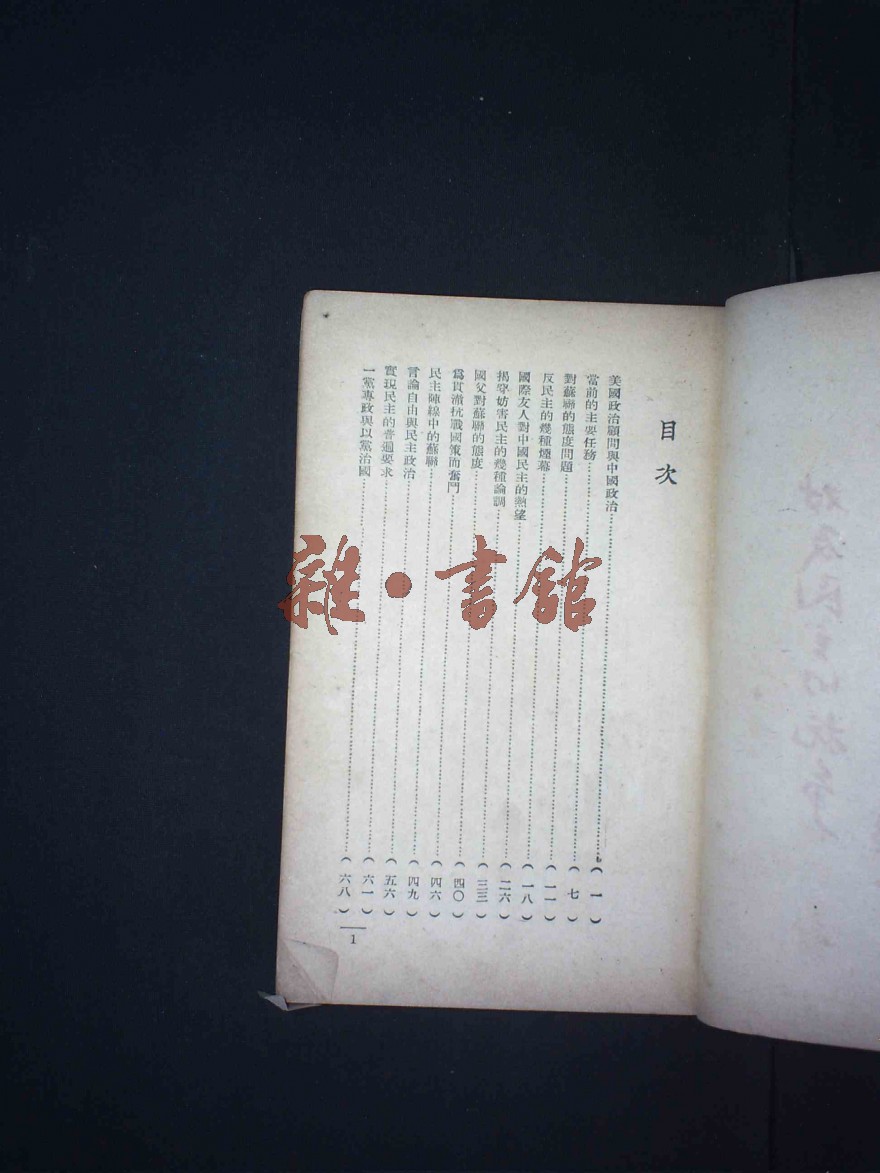 目次
美國政治顧問與中國政治……（一）
當前的主要任務……（七）
對蘇聯的態度問題……（一一）
反民主的幾種煙幕……（一八）
國際友人對中國民主的熱望……（二六）
揭穿妨害民主的幾種論調……（三三）
國父對蘇聯的態度……（四〇）
爲貫澈抗戰國策而奮鬥……（四六）
民主陣線中的蘇聯……（四九）
言論自由與民主政治……（五六）
實現民主的普遍要求……（六一）
一黨專政與以黨治國……（六八）
1
雜·書館